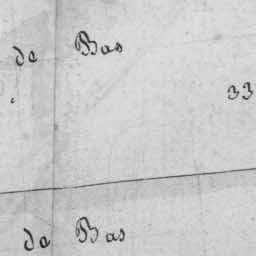 de Bas
33
de Bas